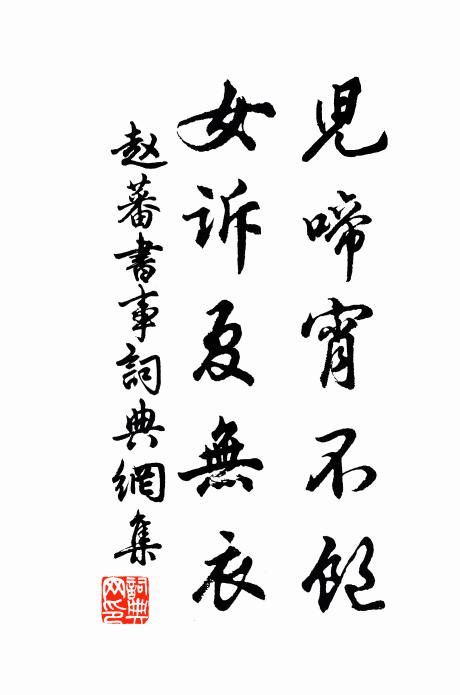 兒啼宵不飽
女訴夏無衣
赵蕃書事詞典網集
詞典网印